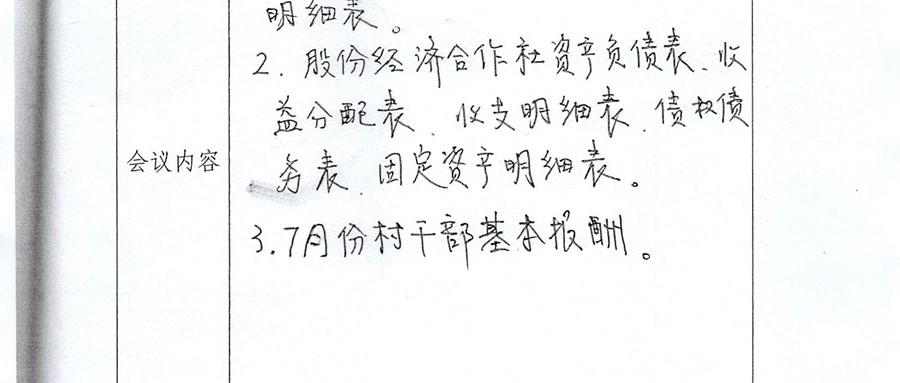 明细表。
2. 股份经济合作社资产负债表、收
益分配表、收支明细表、债权债
务表、固定资产明细表。
会议内容
3.7月份村干部基本报酬。